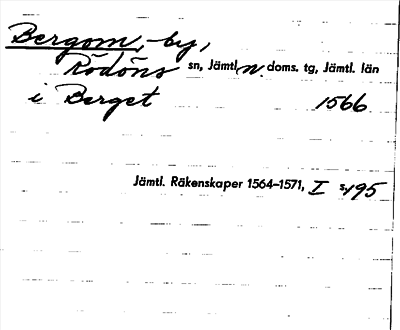 Bergom, -by,
Rödöns sn, Jämtl. n. doms. tg, Jämtl. län
i Berget 1566
Jämtl. Räkenskaper 1564-1571, I s. 195